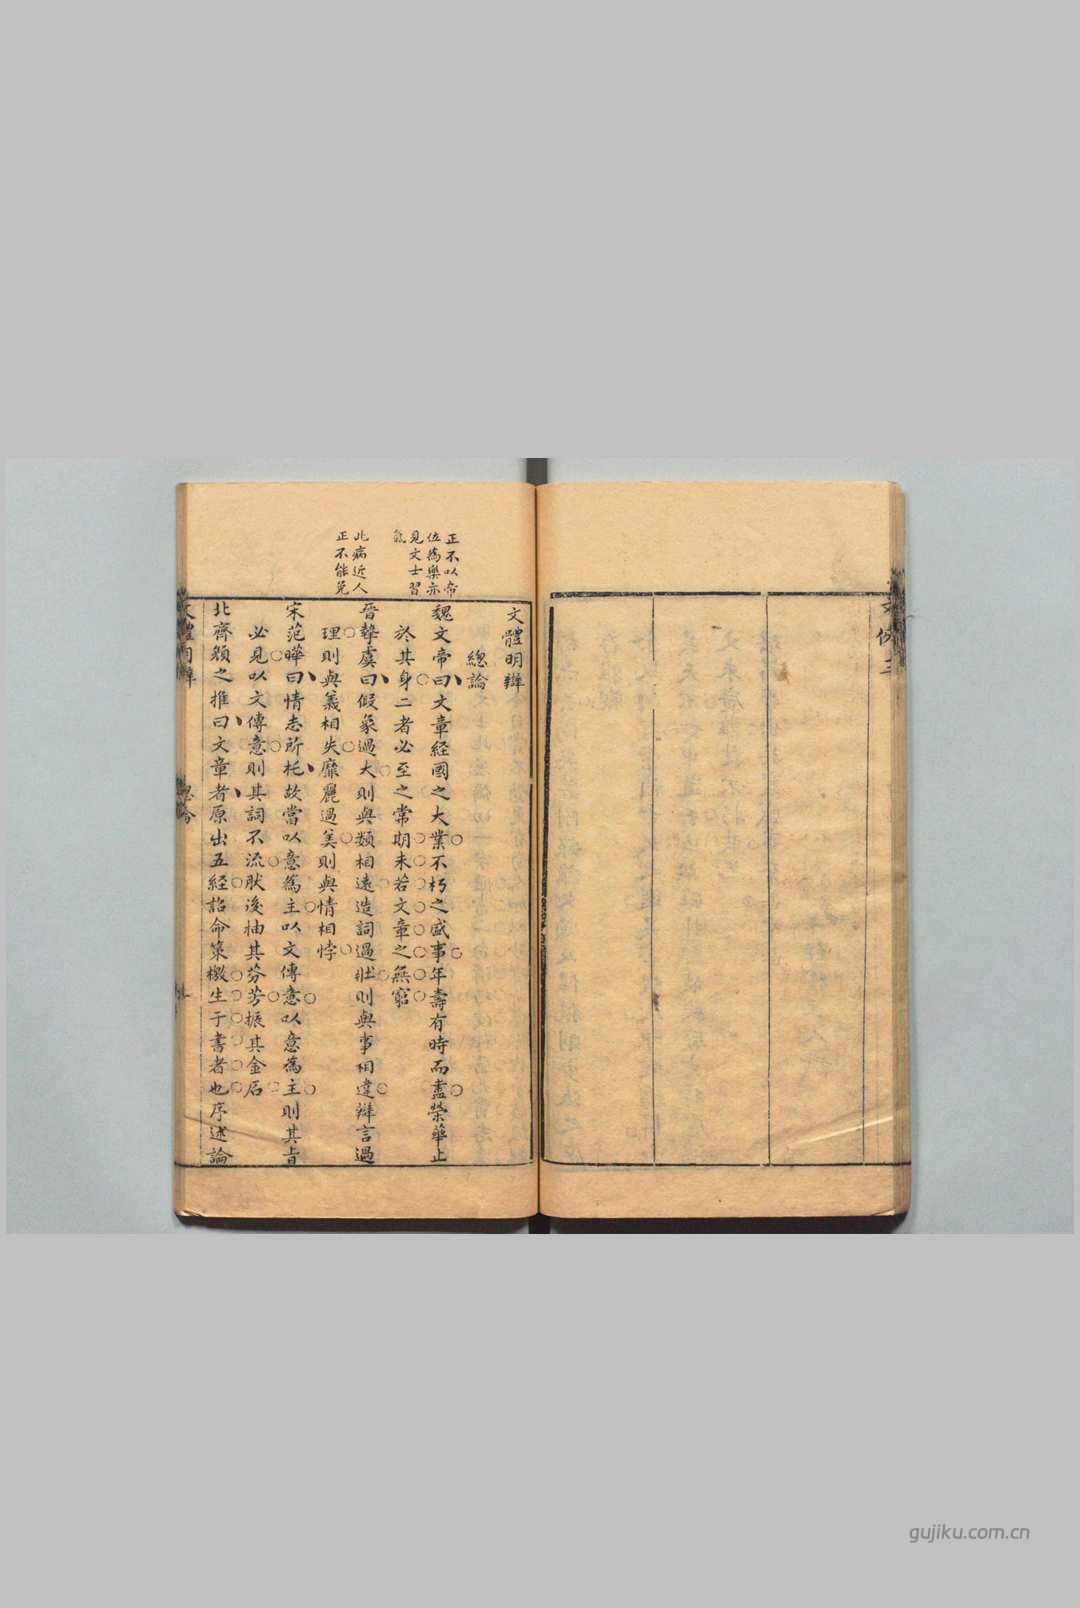 文體明辯
總論
魏文帝曰文章經國之大業不朽之盛事年壽有時而盡榮華止
於其身二者必至之常期未若文章之無窮
晉摯虞曰假象過大則與類相遠造詞過壯則與事相違辯言過
理則與義相失靡麗過美則與情相悖
宋范曄曰情志所托故當以意為主以文傳意以意為主則其旨
必見以文傳意則其詞不流然後抽其芬芳振其金石
北齊顏之推曰文章者原出五經詔命策檄生于書者也序述論
正不以帝
位為樂亦
見文士習
氣
此病近人
正不能免
gujiku.com.cn